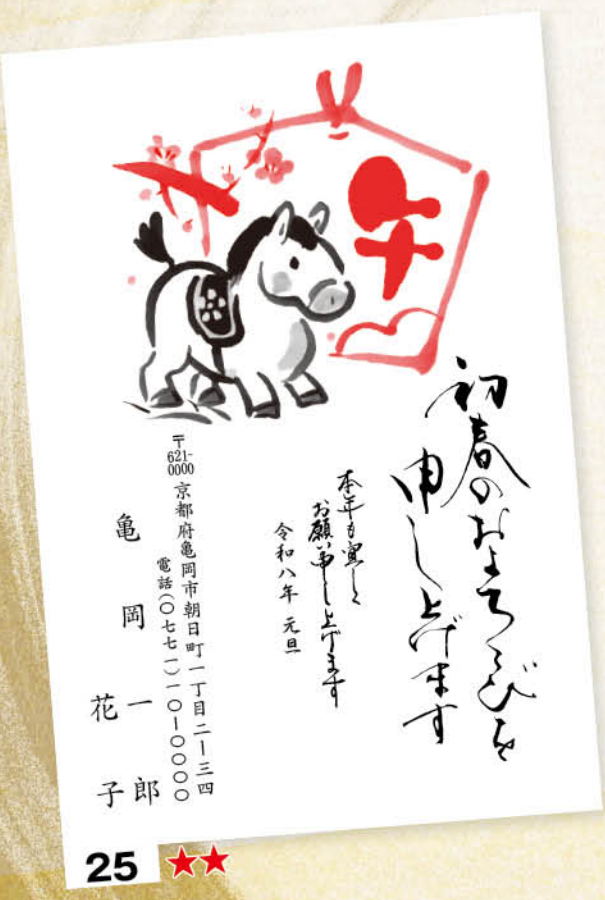 午
初春のおよろこびを
申し上げます
本年も宜しく
お願い申し上げます
令和八年 元旦
〒621-0000 京都府亀岡市朝日町一丁目二ー三四
電話(〇七七一)一〇ー〇〇〇〇
亀岡一郎
花子
25 ★★